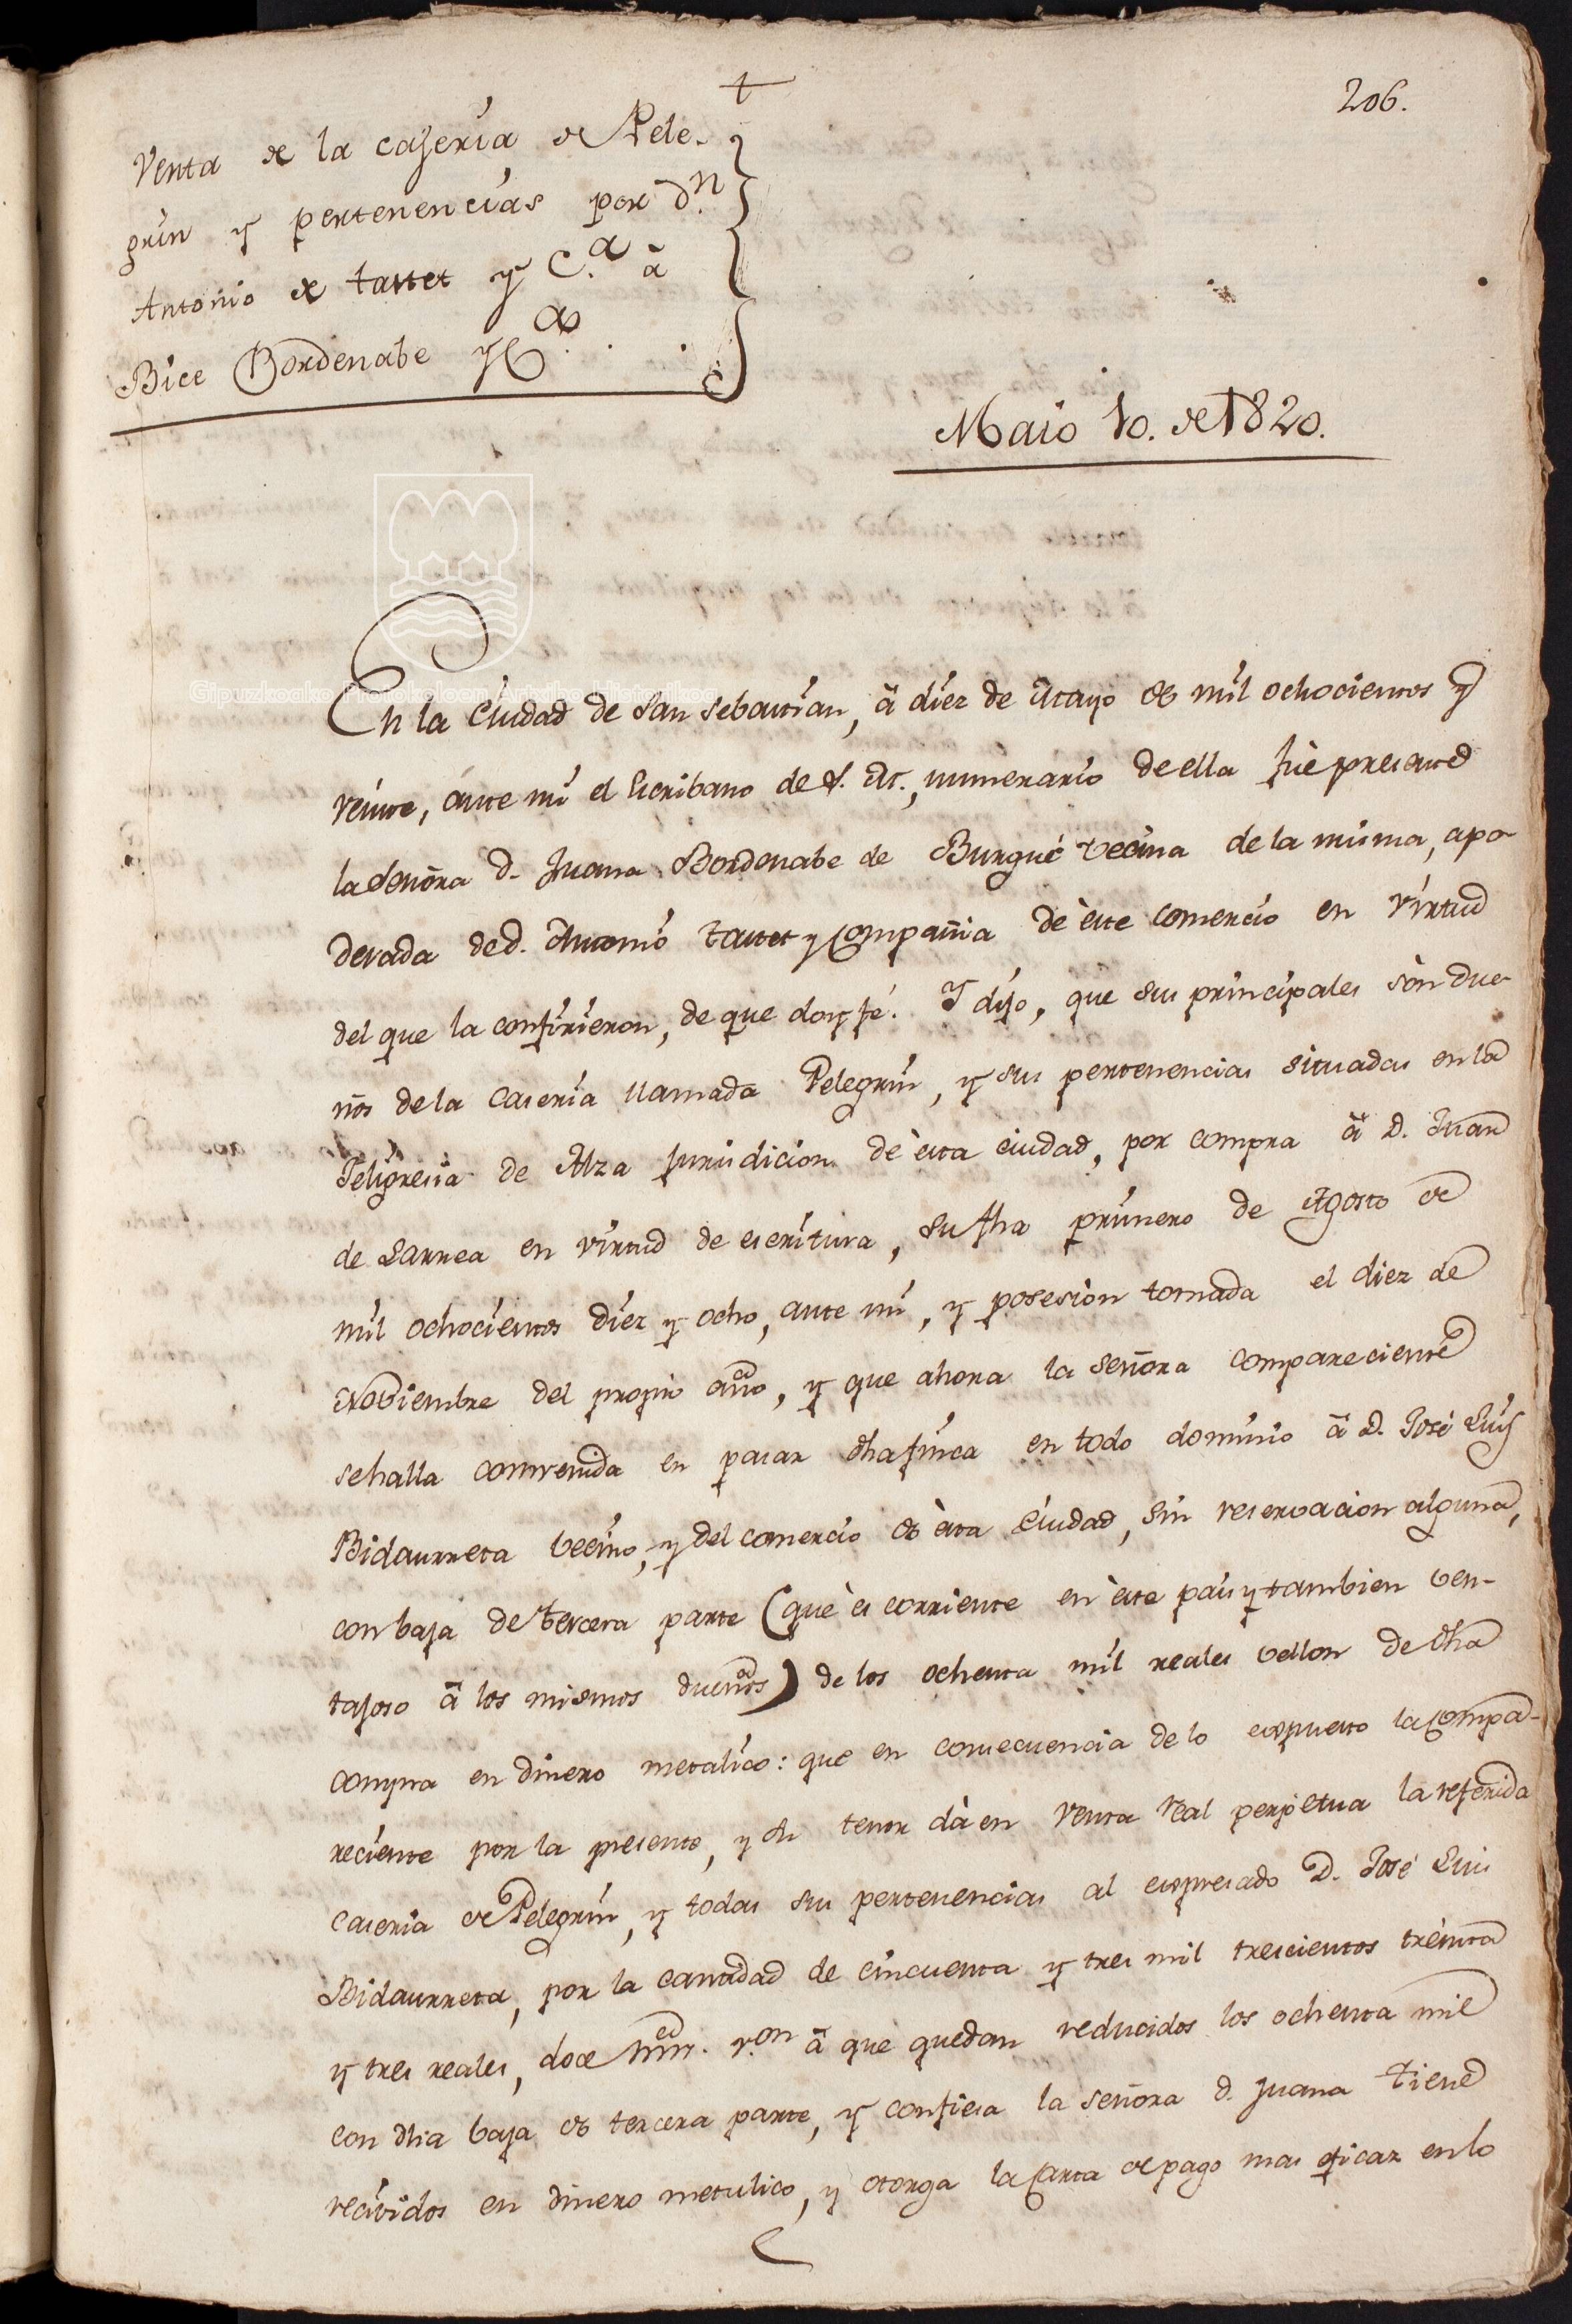 206.
Venta de la casería de Pele-
grin y pertenencias por d.n
Antonio de tastet y C.a à
Bice Bordenabe y C.a . .
Maio 10. de 1820.
Gipuzkoako Protokoloen Artxibo Historikoa
En la Ciudad de San Sebastian, à diez de Mayo de mil ochocientos y
veinte, ante mi el Escribano de S. M., numerario de ella fue presente
la Señora D. Juana Bordenabe de Burgué vecina de la misma, apo
derada de d. Antonio Tastet y Compañia de este comercio en virtud
del que la confirieron, de que doy fé. Y dijo, que sus principales son due
ños de la caseria llamada Pelegrin, y sus pertenencias situadas en la
Feligresia de Alza jurisdicion de esta ciudad, por compra à D. Juan
de Larrea en virtud de escritura, su fha primero de Agosto de
mil ochocientos diez y ocho, ante mi, y posesion tomada el diez de
Noviembre del propio año, y que ahora la señora compareciente
se halla convenida en pasar dha finca en todo dominio à D. José Luis
Bidaurreta vecino, y del comercio de esta Ciudad, sin reservacion alguna,
con baja de tercera parte (que es corriente en este pais y tambien ven-
tajoso à los mismos dueños) de los ochenta mil reales vellon de dha
compra en dinero metalico: que en consecuencia de lo expuesto la Compa-
reciente por la presente, y su tenor dà en venta real perpetua la referida
caseria de Pelegrin, y todas sus pertenencias al expresado D. José Luis
Bidaurreta, por la cantidad de cincuenta y tres mil trescientos treinta
y tres reales, doce mrs. v.on à que quedan reducidos los ochenta mil
con dha baja de tercera parte, y confiesa la señora d. Juana tiene
recividos en dinero metalico, y otorga la Carta de pago mas eficaz en lo